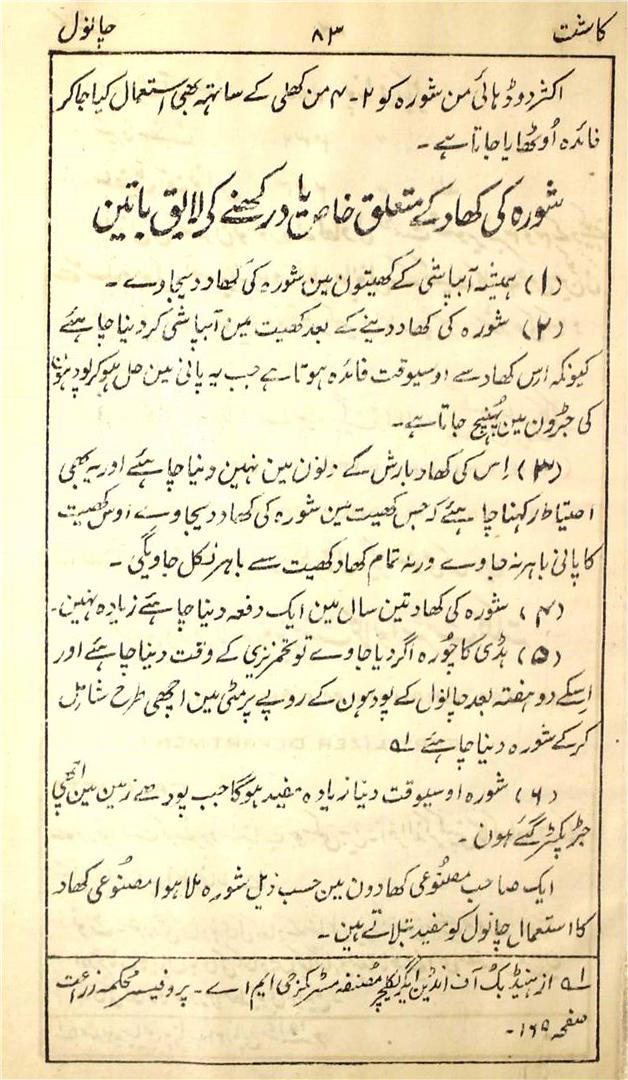 کاشت ۸۳ چانول
اکثر دو ڈہائی من شورہ کو ۲-۴ من کھلی کے ساتہہ بھی استعمال کیا جا کر
فائدہ اُوٹھایا جاتا ہے۔
شورہ کی کھاد کے متعلق خاص یاد رکھنے کی لایق باتین
(۱) ہمیشہ آبپاشی کے کھیتون مین شورہ کی کھاد دیجاوے۔
(۲) شورہ کی کھاد دینے کے بعد کھیت مین آبپاشی کر دینا چاہئے
کیونکہ اس کھاد سے اوسیوقت فائدہ ہوتا ہے جب یہ پانی مین حل ہو کر پودہون
کی جڑون مین پہنچ جاتا ہے۔
(۳) اِس کی کھاد بارش کے دنون مین نہین دینا چاہئے اور یہ بھی
احتیاط رکہنا چاہئے کہ جس کھیت مین شورہ کی کھاد دیجاوے اوس کھیت
کا پانی باہر نہ جاوے ورنہ تمام کھاد کھیت سے باہر نکل جاویگی۔
(۴) شورہ کی کھاد تین سال مین ایک دفعہ دینا چاہئے زیادہ نہین۔
(۵) ہڈی کا چُورہ اگر دیا جاوے تو تخمریزی کے وقت دینا چاہئے اور
اِسکے دو ہفتہ بعد چانول کے پودہون کے روپے پر مٹی مین اچھی طرح شامِل
کر کے شورہ دینا چاہئے ؎۱
(۶) شورہ اوسیوقت دینا زیادہ مفید ہوگا جب پودھے زمین مین اچھی
جڑ پکڑ گئے ہون۔
ایک صاحب مصنُوعی کھادون مین حسب ذیل شورہ ملا ہوا مصنُوعی کھاد
کا استعمال چانول کو مفید بتلاتے ہین۔
؎۱ از ہینڈبک آف انڈین ایگریکلچر مُصنفہ مسٹر مکرجی ایم اے۔ پروفیسر محکمہ زراعت
صفحہ ۱۶۵۔